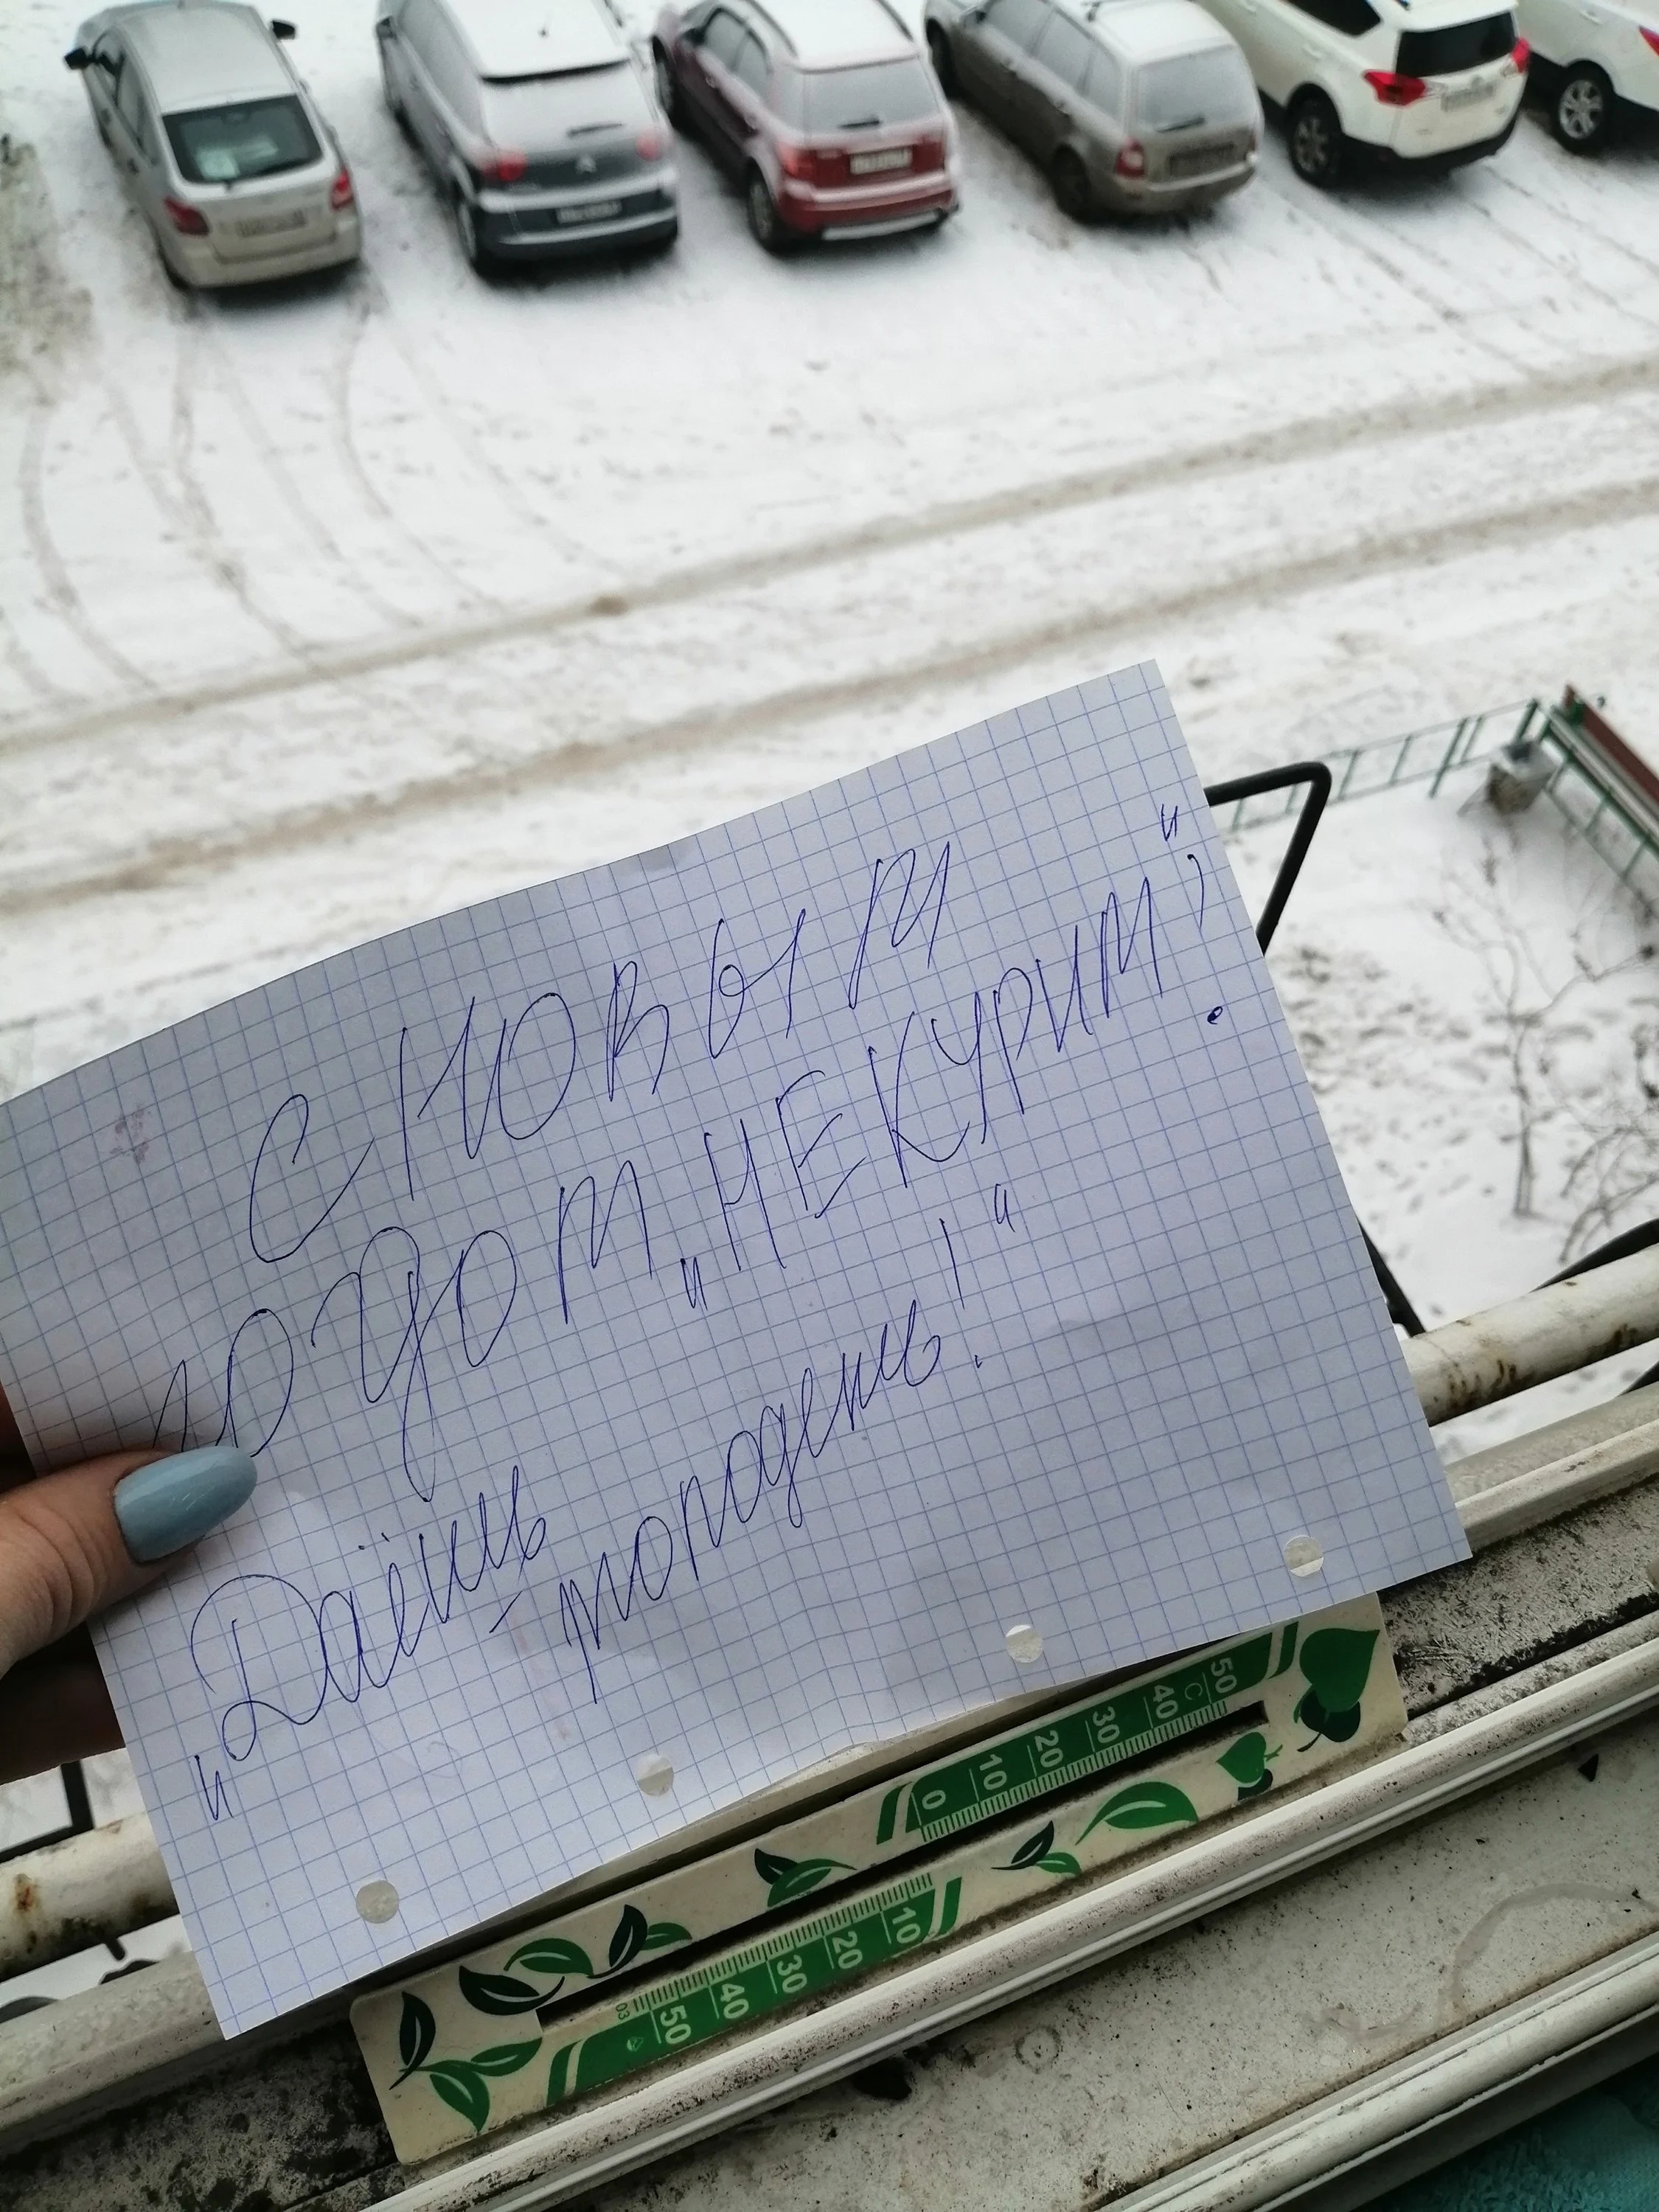 С НОВЫМ
годом „НЕКУРИМ“!
„Даёшь
- молодёжь!“
50
C
40
30
20
10
0
10
20
30
40
50
03